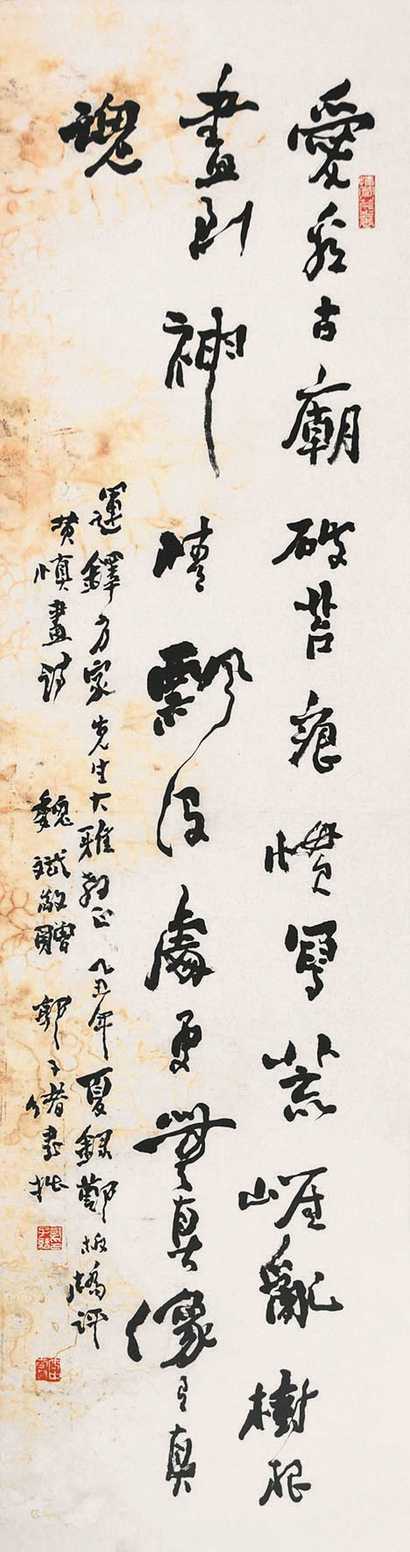 愛看古廟破苔痕慣寫荒崖亂樹根
畫到神情飄沒處更無真像有真
魂
運鐸方家先生大雅教正乙丑年夏錄鄭板橋評
黄慎畫詩 魏斌敬贈 郭子绪書